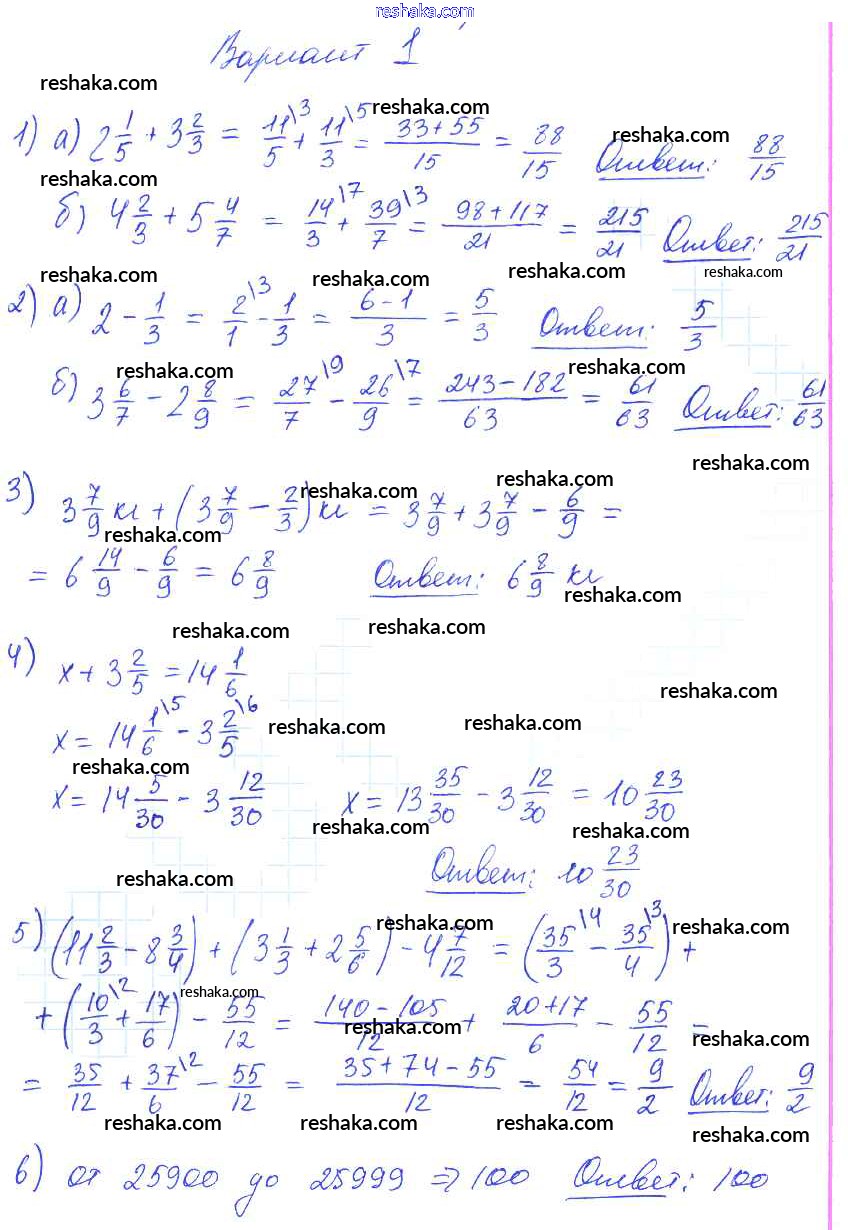 reshaka.com
Вариант 1
reshaka.com reshaka.com
1) а) 2 1/5 + 3 2/3 = 11/5\3 + 11/3\5 = (33+55)/15 = 88/15 Ответ: 88/15
reshaka.com reshaka.com
б) 4 2/3 + 5 4/7 = 14/3\7 + 39/7\3 = (98+117)/21 = 215/21 Ответ: 215/21
reshaka.com reshaka.com reshaka.com reshaka.com
2) а) 2 - 1/3 = 2/1\3 - 1/3 = (6-1)/3 = 5/3 Ответ: 5/3
reshaka.com reshaka.com
б) 3 6/7 - 2 8/9 = 27/7\9 - 26/9\7 = (243-182)/63 = 61/63 Ответ: 61/63
reshaka.com reshaka.com
3) 3 7/9 кг + (3 7/9 - 2/3) кг = 3 7/9 + 3 7/9 - 6/9 =
reshaka.com reshaka.com
= 6 14/9 - 6/9 = 6 8/9 Ответ: 6 8/9 кг
reshaka.com
reshaka.com reshaka.com
4) x + 3 2/5 = 14 1/6
reshaka.com
x = 14 1/6\5 - 3 2/5\6
reshaka.com reshaka.com
reshaka.com
x = 14 5/30 - 3 12/30 x = 13 35/30 - 3 12/30 = 10 23/30
reshaka.com reshaka.com
Ответ: 10 23/30
reshaka.com
reshaka.com reshaka.com
5) (11 2/3 - 8 3/4) + (3 1/3 + 2 5/6) - 4 7/12 = (35/3\4 - 35/4\3) +
reshaka.com
+ (10/3\2 + 17/6) - 55/12 = (140-105)/12 + (20+17)/6 - 55/12 =
reshaka.com reshaka.com
= 35/12 + 37/6\2 - 55/12 = (35+74-55)/12 = 54/12 = 9/2 Ответ: 9/2
reshaka.com reshaka.com reshaka.com reshaka.com
6) от 25900 до 25999 ⇒ 100 Ответ: 100
reshaka.com